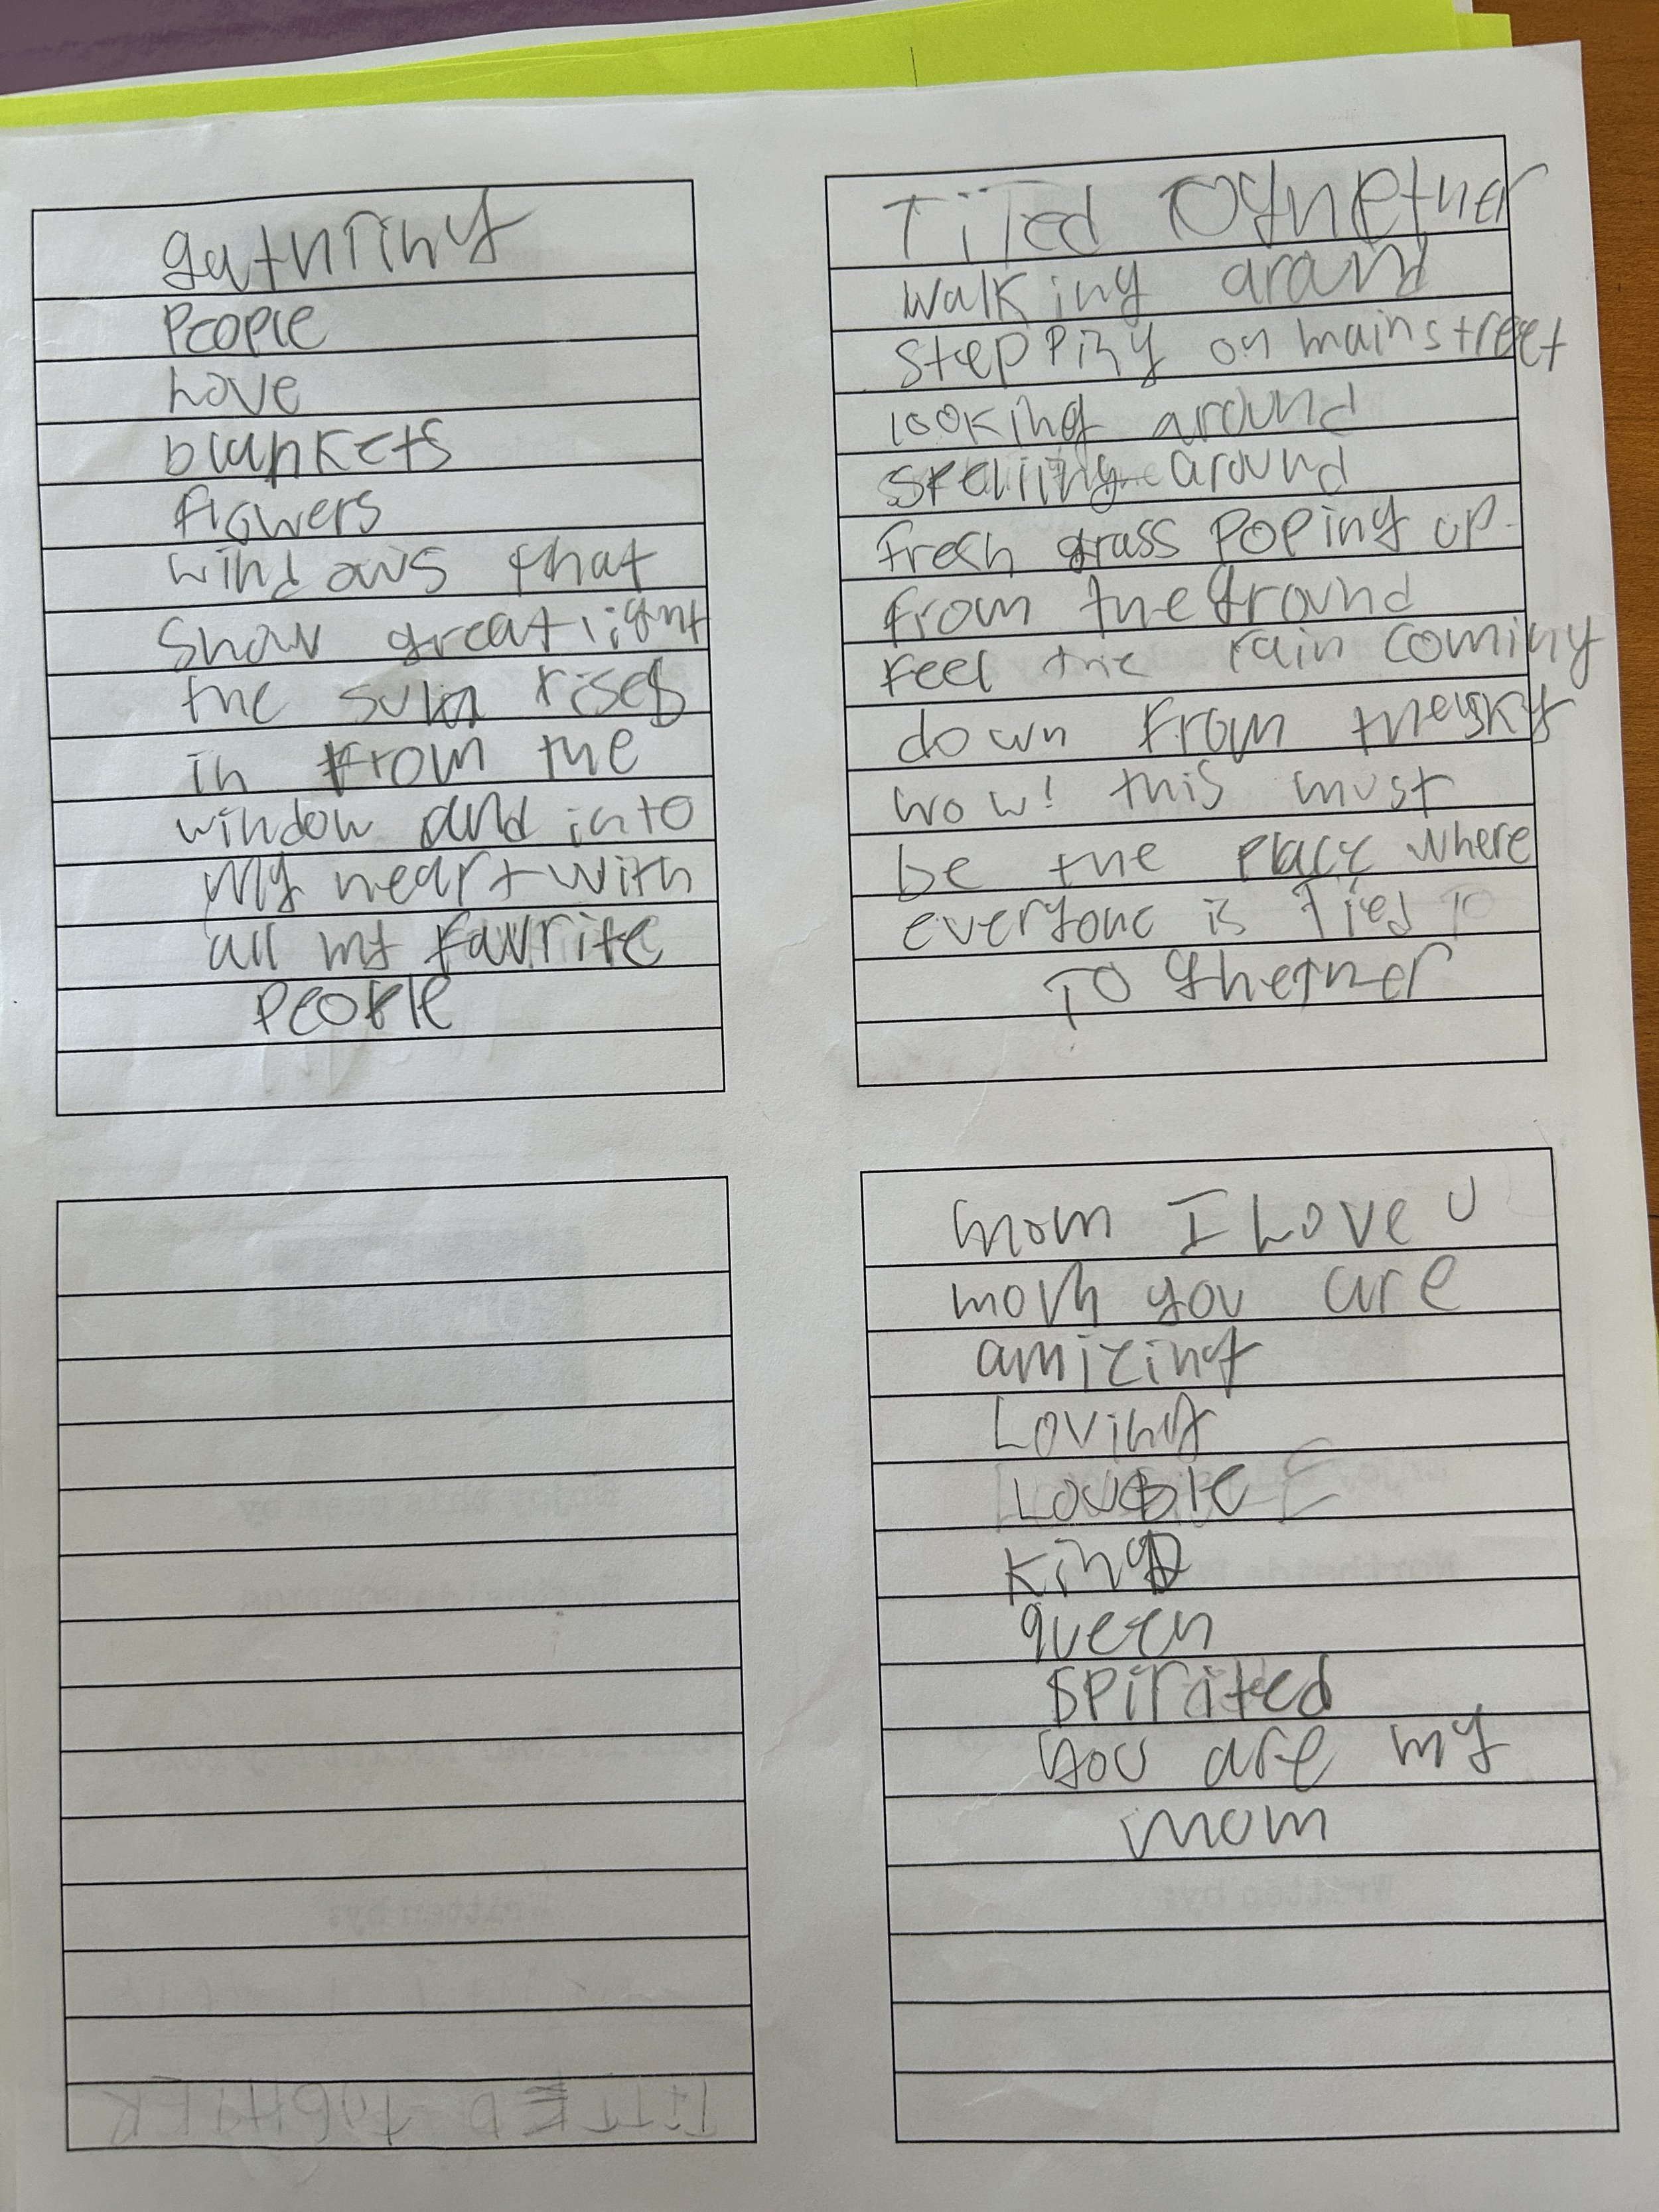 gathring
People
Love
blankets
flowers
windows that
Show great light
the sun rises
in from the
window and into
My heart with
all my favrite
people
Tited Toghether
walking around
stepping on mainstreet
looking around
around
fresh grass poping up
from the ground
feel the rain coming
down from the sky
wow! this must
be the place where
everyone is Tied To
To ghether
mom I Love U
mom you are
amizing
Loving
Loveble
King
queen
spirited
you are my
mom